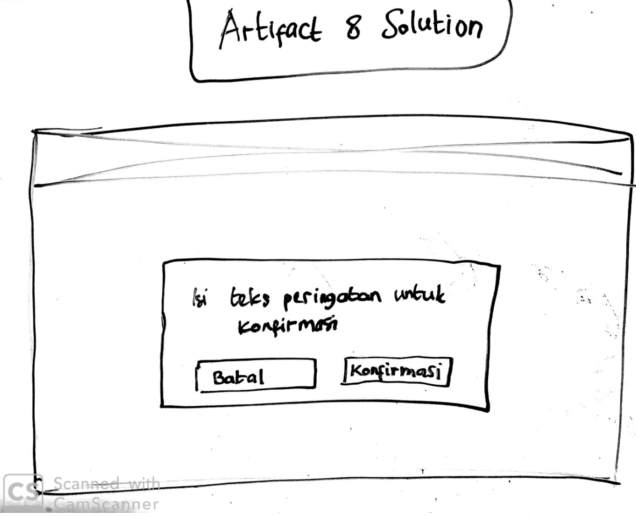 Artifact 8 Solution
Isi teks peringatan untuk
konfirmasi
Batal
Konfirmasi
CS Scanned with
CamScanner